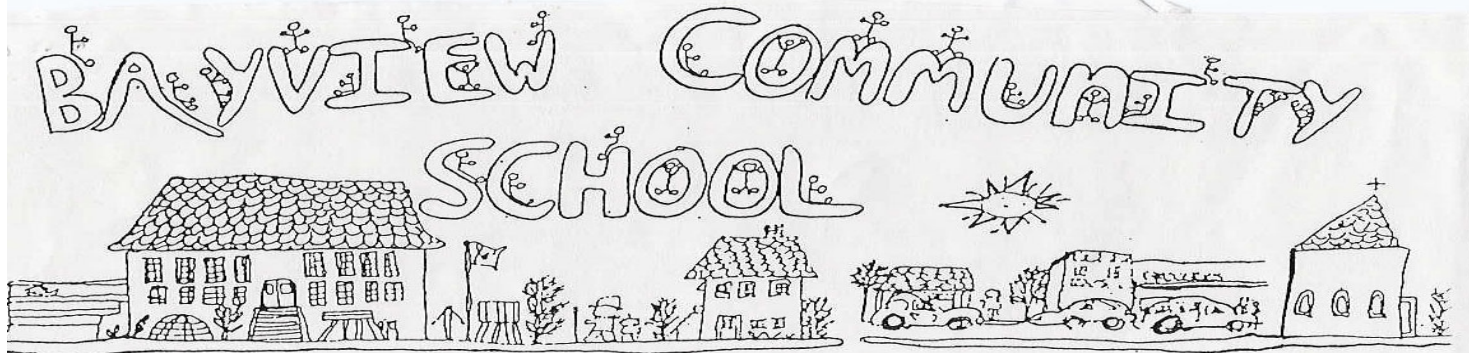 BAYVIEW COMMUNITY
SCHOOL